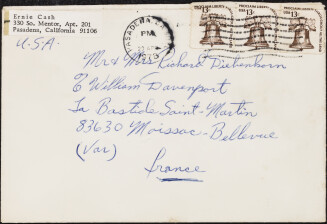 Ernie Cash
330 So. Mentor, Apt. 201
Pasadena, California 91106
U.S.A.
PASADENA
PM
PROCLAIM LIBERTY
PROCLAIM LIBERTY
PROCLAIM LIBERTY
13c
13c
13c
Mr & Mrs Richard Diebenkorn
% William Davenport
La Bastide Saint-Martin
83630 Moissac-Bellevue
(Var)
France